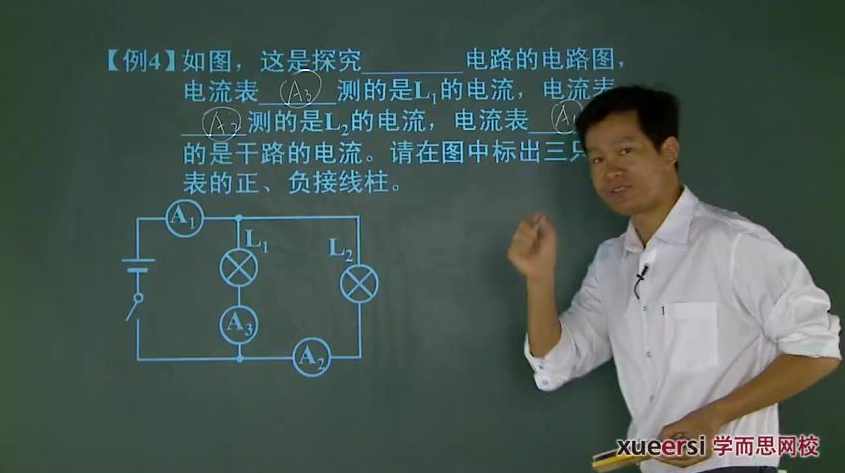 【例4】如图，这是探究________电路的电路图，
电流表 A₃ 测的是L₁的电流，电流表
A₂ 测的是L₂的电流，电流表
的是干路的电流。请在图中标出三只
表的正、负接线柱。
A₁
L₁
L₂
A₃
A₂
1
xueersi 学而思网校